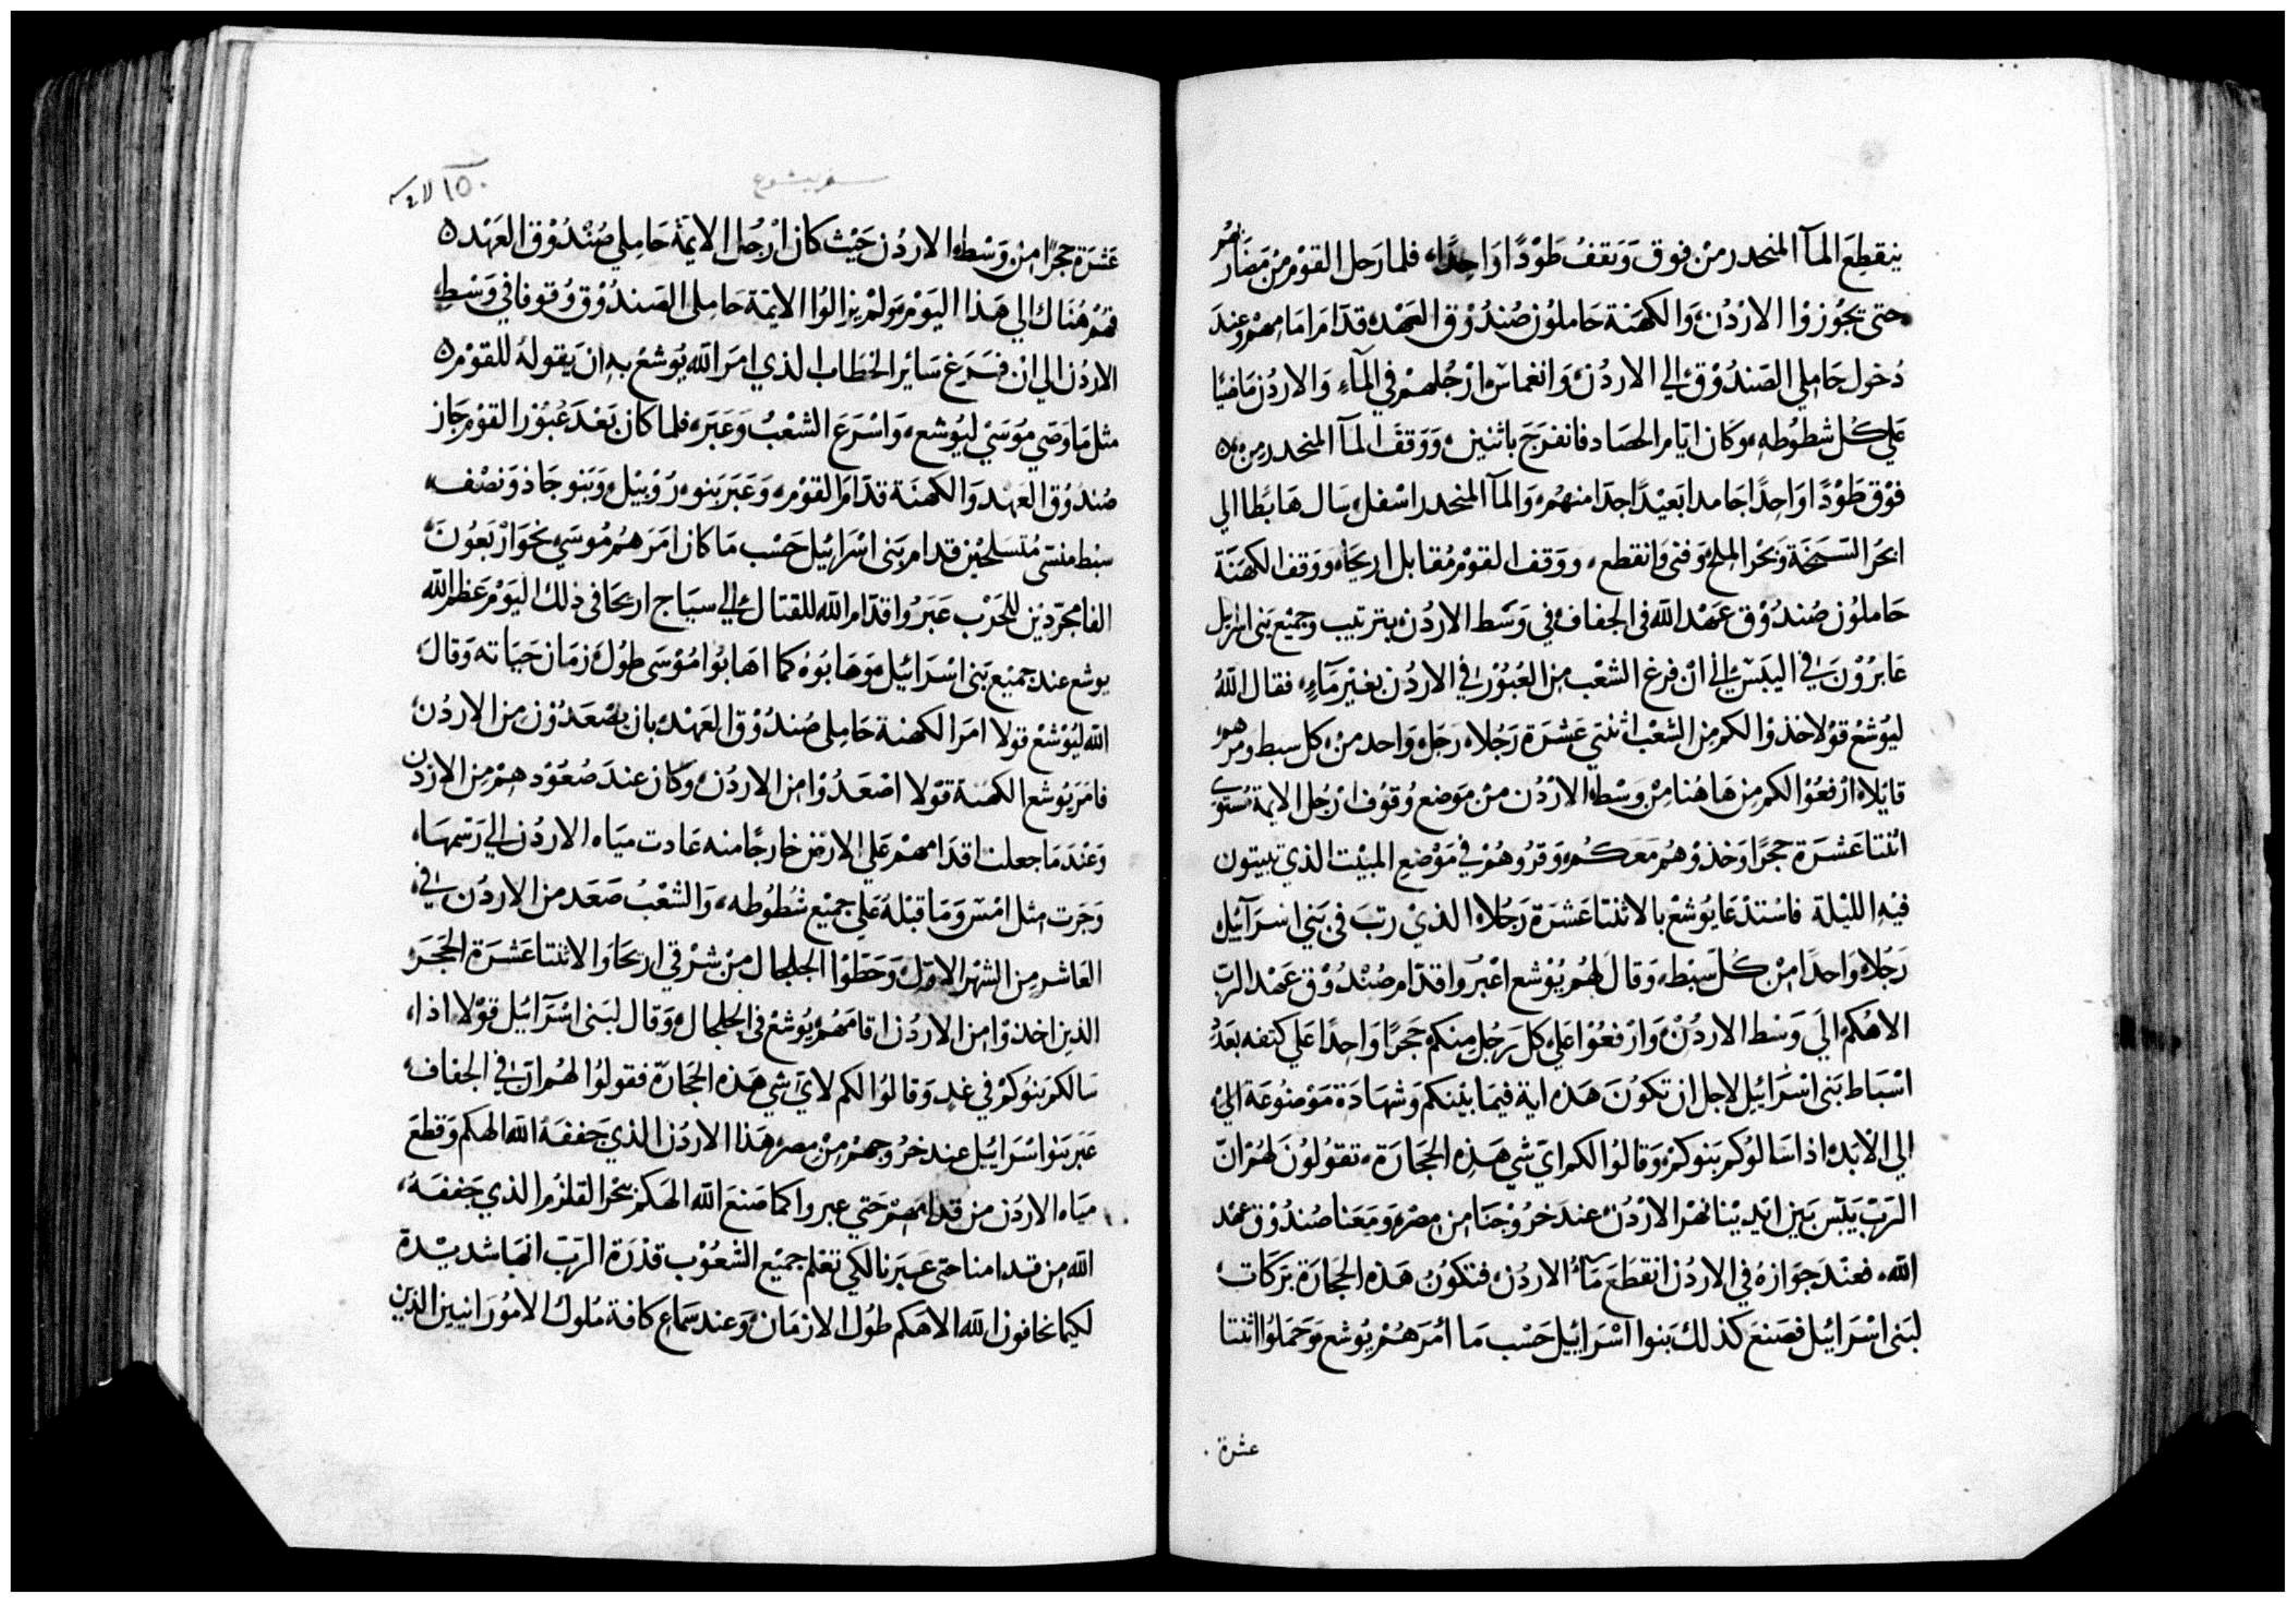 ينقطع المآ المنحدر من فوق وَتقفُ طَوْدًا وَاحِدًا، فلما رَحل القوْم مِنْ مَضَارِبهُمْ
حتى يجُوزوْا الارْدُن، وَالكهَنة حَاملوُن صُندُوْق العَهْد، قدّامَ امَامِهمْ وعندَ
دُخول حَامِلي الصَندُوْق الي الاردُن، وَانغماسْ ارْجُلهمْ في المآءِ وَالاردُن مَاضيًا
عَلي كُل شطوُطه، وَكان ايّام الحصَاد فانفرَجَ باثنين، وَوَقفَ المآ المنحدر مِن
فوْق طَوْدًا وَاحِدًا جَامدا بَعيْدًا جدَا منهُم، وَالمآ المنحدر اسْفل، سَال هَابَطا الي
ابحرُ السَبَخَة وَبَحْر الملح، وَفنى وَانقطع، ووَقف القوْم مُقابل اريحَا، ووَقف الكهنَة
حَاملوُن صُندُوْق عَهْد اللّه في الجفاف في وَسَط الاردُن، بترتيب وجميْع بَنى اسرَايل
عَابرُوْنَ في اليَبَسْ الي انْ فرغ الشعْب مِن العُبُوْر في الاردُن بغيْر مَآءٍ، فقال اللّهُ
ليُوشعْ قوْلا خذوْا لكم مِن الشعْب اثنتي عَشرَة رَجُلا، رَجل وَاحد منْ كل سبط ومرهم
قايْلا، ارْفعُوْا لكم مِن هَاهُنا مِنْ وَسْط الارْدُن منْ مَوَضع وُقوُف ارْجُل الايمة مُستوى
اثنتا عَشرَة حجرًا وَخذوْهُم مَعَكُم، وَقرُوهُمْ في مَوْضع المبيْت الذي تبيتون
فيْه الليْلة فاسْتدْعَا يُوشعْ بالاثنتا عَشرَة رَجُلا، الذيْ رتبَ في بَني اسْرَآئيْل
رَجُلا، وَاحدًا مِنْ كُل سبْط، وَقالَ لهُم يُوْشع اعْبُروا قدّام صُنْدُوْق عَهْد الربّ
الاهُكم الَي وَسْط الاردُنْ وَارْفعُوْا عَلي كل رَجُل مِنكم حَجرًا وَاحِدًا عَلي كتفه بعَدُ
اسْبَاط بَنى اسْرَائيْل لاجل ان تكوُنَ هَذه اية فيمَا بيْنكم وَشهَادَة مَوْضُوعَة الي
الي الابْد، اذا سَالوُكم بَنوكمْ وَقالوُا لكم ايّ شي هَذِه الحجَارَة، تقوُلوُنَ لهُمْ انّ
الرَبّ يَبَّس بَين ايْديْنا نهْر الارْدُن، عندَ خرُوْجنَا من مصْر، وَمَعَنا صُندُوْق عهْد
اللّه، فعنْد جوَازهُ في الاردُن انقطَعَ مَآءُ الاردُن، فتكوُنُ هَذه الحجَارَة بَرَكات
لبَنى اسْرَائيْل فصَنعَ كذلك بَنوا آسْرَاييْل حَسْب مَا أمَرَهُمْ يُوشع، وَحَملوُا اثنتا
عشرة
سفر يشوع
١٥٠
عَشرَة حجرًا مِنْ وَسْط الاردُن حَيْث كان ارْجُل الايمّة حَامِلي صُنْدُوْق العَهْد،
فهُمْ هُنَاك الي هَذا اليَوْم، وَلمْ يزالوُا الايمّة حَاملى الصَندُوْق وُقوفا في وَسْط
الاردُن الي انْ فرَغ سَائر الخطاب الذي امَر اللّه يُوشعْ به ان يَقولهُ للقوْم
مثل مَا وَصَي مُوَسَيْ ليُوشع، وَاسْرَعَ الشعْبُ وَعَبَرَ، فلما كان بَعْدَ عُبُوْر القوْم جَاز
صُندوُق العَهْد وَالكهنَة قدّامَ القوْم، وَعَبَرَ بَنو رُوْبيْل، وَبَنو جَاذ وَنصْف
سبْط منسّى مُتسَلحْين قدام بَنى اسْرَائيْل حَسْب مَا كان امَرَهُم مُوسَي نحَوَ ارْبَعُونَ
الفا مجَرّديْن للحَرْب عَبَرُوا قدّام اللّه للقتال الي سيَاج اريْحَا في ذلك اليَوْم عَظم اللّه
يوشع عند جميْع بَنى اسْرَائيْل، وَهَابُوْهُ كما اهَابُوا مُوْسَى طوُل زمَان حيَاته وَقالَ
اللّه ليُوْشعْ قولا امَر الكهنة حَامِلى صُندُوْق العَهْد، بان يصْعَدُوْن مِن الاردُن
فامَرَ يُوشع الكهَنة قوْلا اصْعَدُوْا من الاردُن، وَكان عندَ صُعُوْدهمْ مِن الارْدُن
وَعنْدَ مَا جعلت اقدَامهمْ عَلي الارْض خارجًا منه عَادت ميَاه الاردُن الي رَسْمهَا،
وَجَرت مثل امْسْ وَمَا قبْلهُ عَلي جميْع شُطوُطه، وَالشعْبُ صَعَد من الاردُن في
العَاشر مِن الشهْر الاوّل، وَحَطوُا الجلجَال مِنْ شرْقي اريحَا وَالاثنتا عَشرَة الحَجَرَ
الذين اخذوْا من الاردُن اقامَهُمْ يُوشعْ في الجلجال، وَقال لبَنى اسْرَآئيْل قوْلا اذا،
سَالكم بَنوُكمْ في غدٍ وَقالوُا لكم لايّ شي هَذه الحجَارَة فقولوُا لهُم انّ في الجفاف
عَبَر بَنوا اسْرَائيْل عند خرُوجهمْ مِنْ مصر، هَذا الاردُن الذي جَففهُ اللّه الهكم وَقطعَ
ميَاه الاردُن من قدامهمْ حَتي عبروا كما صَنعَ اللّه الهَكم بَحْر القلزُم الذي جَففهُ،
اللّه مِن قدامنا حَتى عَبَرنا لكي تعْلم جميْع الشعُوْب قدْرَة الرَبّ انهَا شديْدة
لكيما تخافون اللّه الاهَكم طوُل الازمَان، وَعند سَمَاع كافة مُلوك الامُوْرَانيين الذين